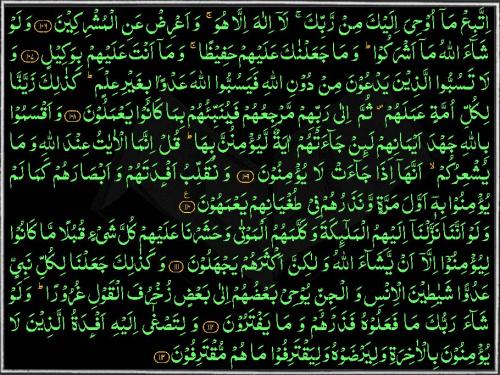 اِتَّبِعْ مَاۤ اُوْحِیَ اِلَیْكَ مِنْ رَّبِّكَ ۚ لَاۤ اِلٰهَ اِلَّا هُوَ ۚ وَ اَعْرِضْ عَنِ الْمُشْرِكِیْنَ ﴿۱۰۶﴾ وَ لَوْ
شَآءَ اللّٰهُ مَاۤ اَشْرَكُوْا ؕ وَ مَا جَعَلْنٰكَ عَلَیْهِمْ حَفِیْظًا ۚ وَ مَاۤ اَنْتَ عَلَیْهِمْ بِوَكِیْلٍ ﴿۱۰۷﴾ وَ
لَا تَسُبُّوا الَّذِیْنَ یَدْعُوْنَ مِنْ دُوْنِ اللّٰهِ فَیَسُبُّوا اللّٰهَ عَدْوًۢا بِغَیْرِ عِلْمٍ ؕ كَذٰلِكَ زَیَّنَّا
لِكُلِّ اُمَّةٍ عَمَلَهُمْ ۪ ثُمَّ اِلٰی رَبِّهِمْ مَّرْجِعُهُمْ فَیُنَبِّئُهُمْ بِمَا كَانُوْا یَعْمَلُوْنَ ﴿۱۰۸﴾ وَ اَقْسَمُوْا
بِاللّٰهِ جَهْدَ اَیْمَانِهِمْ لَئِنْ جَآءَتْهُمْ اٰیَةٌ لَّیُؤْمِنُنَّ بِهَا ؕ قُلْ اِنَّمَا الْاٰیٰتُ عِنْدَ اللّٰهِ وَ مَا
یُشْعِرُكُمْ ۙ اَنَّهَاۤ اِذَا جَآءَتْ لَا یُؤْمِنُوْنَ ﴿۱۰۹﴾ وَ نُقَلِّبُ اَفْـِٕدَتَهُمْ وَ اَبْصَارَهُمْ كَمَا لَمْ
یُؤْمِنُوْا بِهٖۤ اَوَّلَ مَرَّةٍ وَّ نَذَرُهُمْ فِیْ طُغْیَانِهِمْ یَعْمَهُوْنَ ﴿۱۱۰﴾
وَ لَوْ اَنَّنَا نَزَّلْنَاۤ اِلَیْهِمُ الْمَلٰٓىِٕكَةَ وَ كَلَّمَهُمُ الْمَوْتٰی وَ حَشَرْنَا عَلَیْهِمْ كُلَّ شَیْءٍ قُبُلًا مَّا كَانُوْا
لِیُؤْمِنُوْۤا اِلَّاۤ اَنْ یَّشَآءَ اللّٰهُ وَ لٰكِنَّ اَكْثَرَهُمْ یَجْهَلُوْنَ ﴿۱۱۱﴾ وَ كَذٰلِكَ جَعَلْنَا لِكُلِّ نَبِیٍّ
عَدُوًّا شَیٰطِیْنَ الْاِنْسِ وَ الْجِنِّ یُوْحِیْ بَعْضُهُمْ اِلٰی بَعْضٍ زُخْرُفَ الْقَوْلِ غُرُوْرًا ؕ وَ لَوْ
شَآءَ رَبُّكَ مَا فَعَلُوْهُ فَذَرْهُمْ وَ مَا یَفْتَرُوْنَ ﴿۱۱۲﴾ وَ لِتَصْغٰۤی اِلَیْهِ اَفْـِٕدَةُ الَّذِیْنَ لَا
یُؤْمِنُوْنَ بِالْاٰخِرَةِ وَ لِیَرْضَوْهُ وَ لِیَقْتَرِفُوْا مَا هُمْ مُّقْتَرِفُوْنَ ﴿۱۱۳﴾